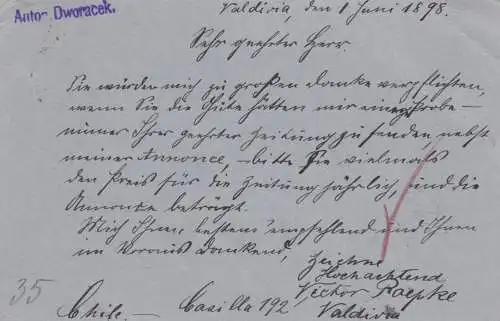 Anton Dworacek.
Valdivia, den 1 Juni 1898.
Sehr geehrter Herr.
Sie würden mich zu großen danke verpflichten,
wenn Sie die Güte hätten mir eine Probe-
numer Ihrer geehrter Zeitung zu senden, nebst
meiner Annonce, – bitte Sie vielmals
den Preis für die Zeitung jährlich, und die
Annonce beträgt.
Mich Ihnen bestens empfehlend und Ihnen
im Voraus dankend,
Zeichne
Hochachtend
Victor Raepke
Chile. – Casilla 192 Valdivia
35